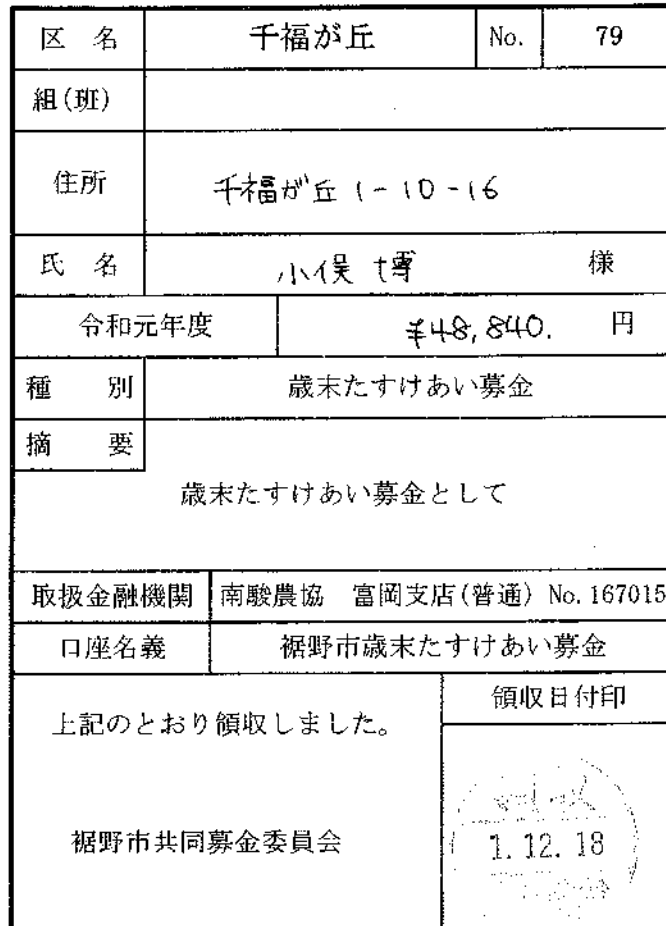 区 名 千福が丘 No. 79
組(班)
住所 千福が丘 1-10-16
氏 名 小俣 博 様
令和元年度 ¥48,840. 円
種 別 歳末たすけあい募金
摘 要
歳末たすけあい募金として
取扱金融機関 南駿農協 富岡支店(普通) No.167015
口座名義 裾野市歳末たすけあい募金
上記のとおり領収しました。
領収日付印
裾野市共同募金委員会
1.12.18